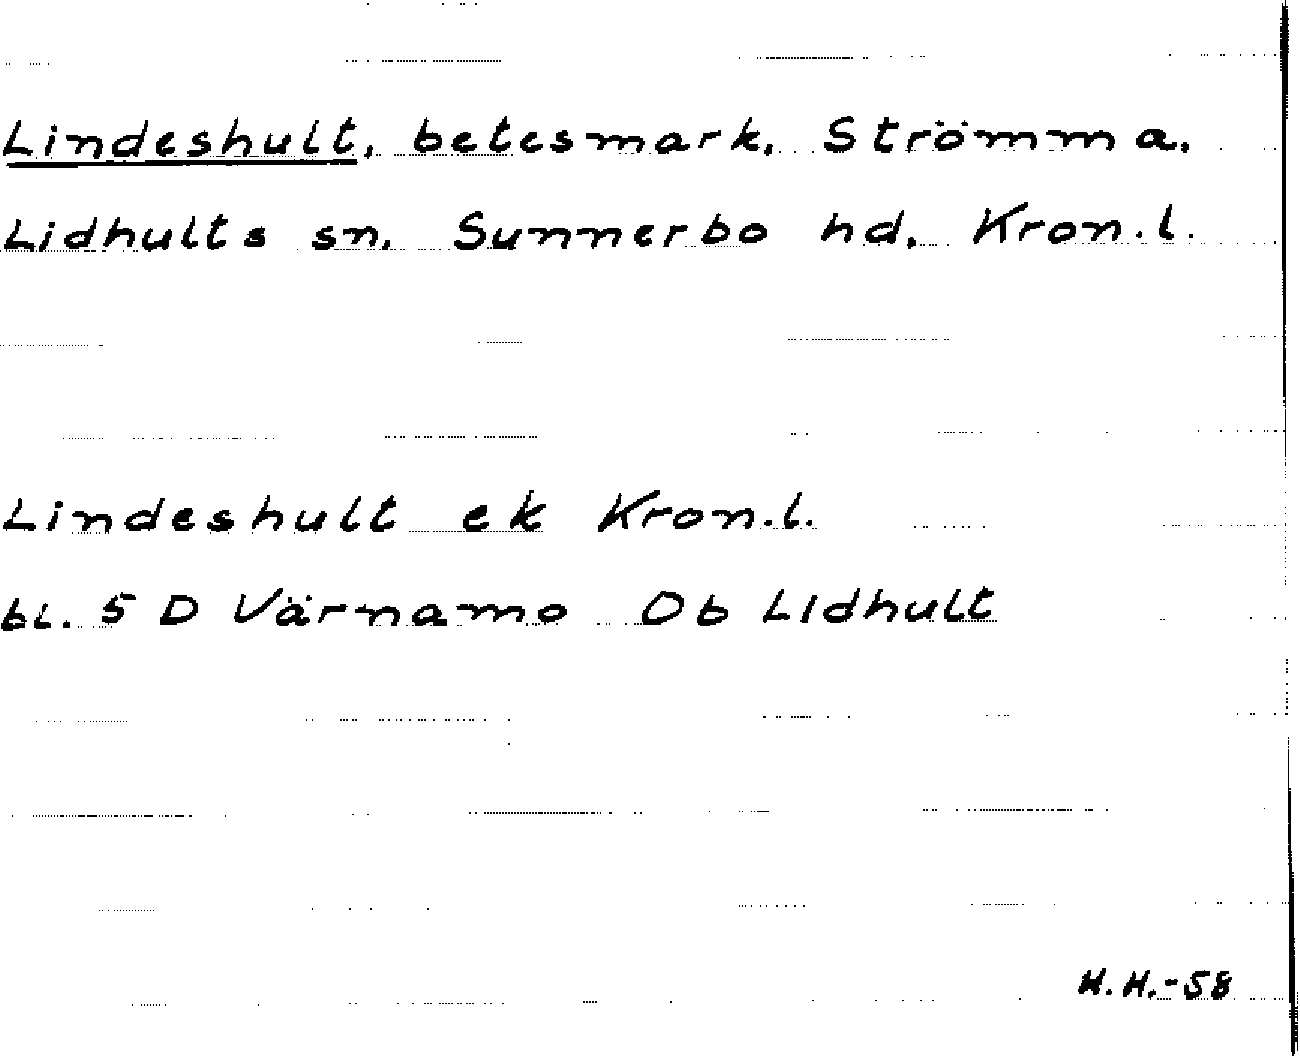 Lindeshult, betesmark, Strömma,
Lidhults sn, Sunnerbo hd, Kron.l.
Lindeshult ek Kron.l.
bl. 5 D Värnamo Ob Lidhult
H.H.-58